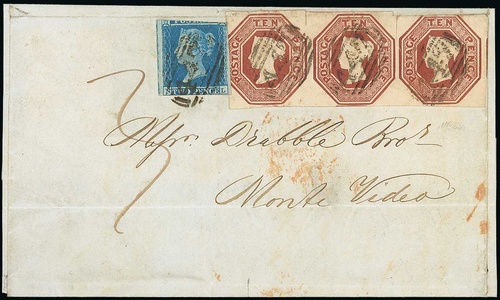 POSTAGE
TWO PENCE
S L
POSTAGE TEN PENCE
POSTAGE TEN PENCE
POSTAGE TEN PENCE
Messrs Drabble Bros
Monte Video